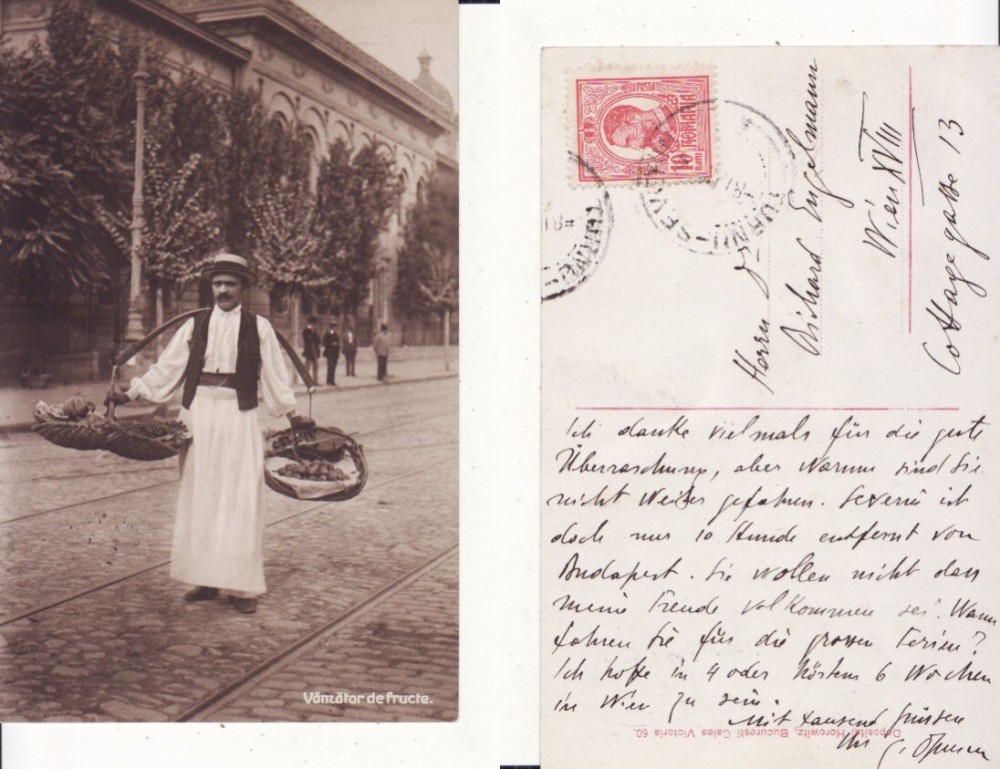 Vânzător de fructe.
POSTA
ROMANIA
10 BANI
TURNU-SEVE
TURNU
Herrn
Richard Engelmann
Wien XVIII
Cottagegasse 13
Ich danke vielmals für die gute
Überraschung, aber warum sind Sie
nicht weiter gefahren. Severin ist
doch nur 10 Stunde entfernt von
Budapest. Sie wollen nicht dass
meine Freude vollkommen sei. Wann
fahren Sie für die grossen Ferien?
Ich hoffe in 4 oder höstens 6 Wochen
in Wien zu sein.
Mit tausend Grüssen
Ihr
Depositul Horowitz, Bucuresti Calea Victoria 60.